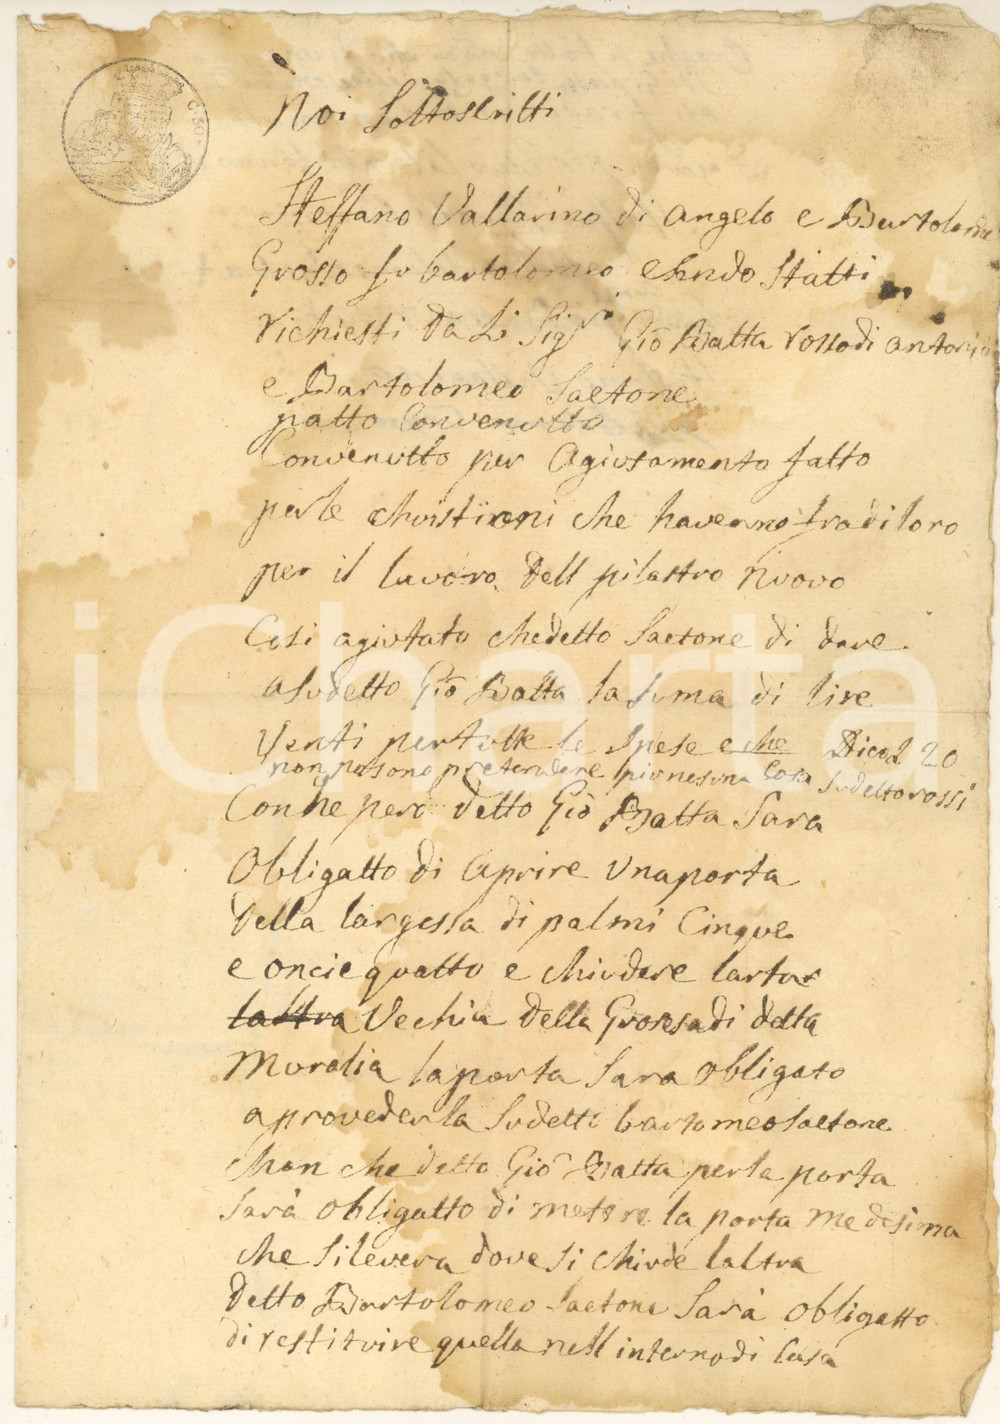 C. 30.
Noi Sottoscritti
Steffano Vallarino di angelo e Bartolome
Grosso fu bartolomeo essendo statti
richiesti da Li Sigri Gio Batta rosso di antonio
e Bartolomeo Saetone
patto Convenutto
Convenutto per Agiustamento fatto
per le che havevano fra di loro
per il lavoro dell pilastro nuovo
Cosi agiustato che detto Saetone di deve
a sudetto Gio Batta la suma di lire
Venti per tutte le Spese e che Dico L 20
non posono pretendere piu nesuna Cosa sudetto rossi
Con che pero detto Gio Batta Sara
Obligatto di Aprire Una porta
della largessa di palmi Cinque
e oncie quatto e chiudere lartar
laltra Vechia della Grosesa di detta
Muralia la porta Sara obligato
a provederla sudetti bartomeo Saetone
che detto Gio Batta per la porta
Sarà obligatto di metere la porta medesima
che si levera dove si chiude laltra
detto Bartolomeo Saetone Sarà obligatto
di restituire quella nell interno di Casa
iCharta